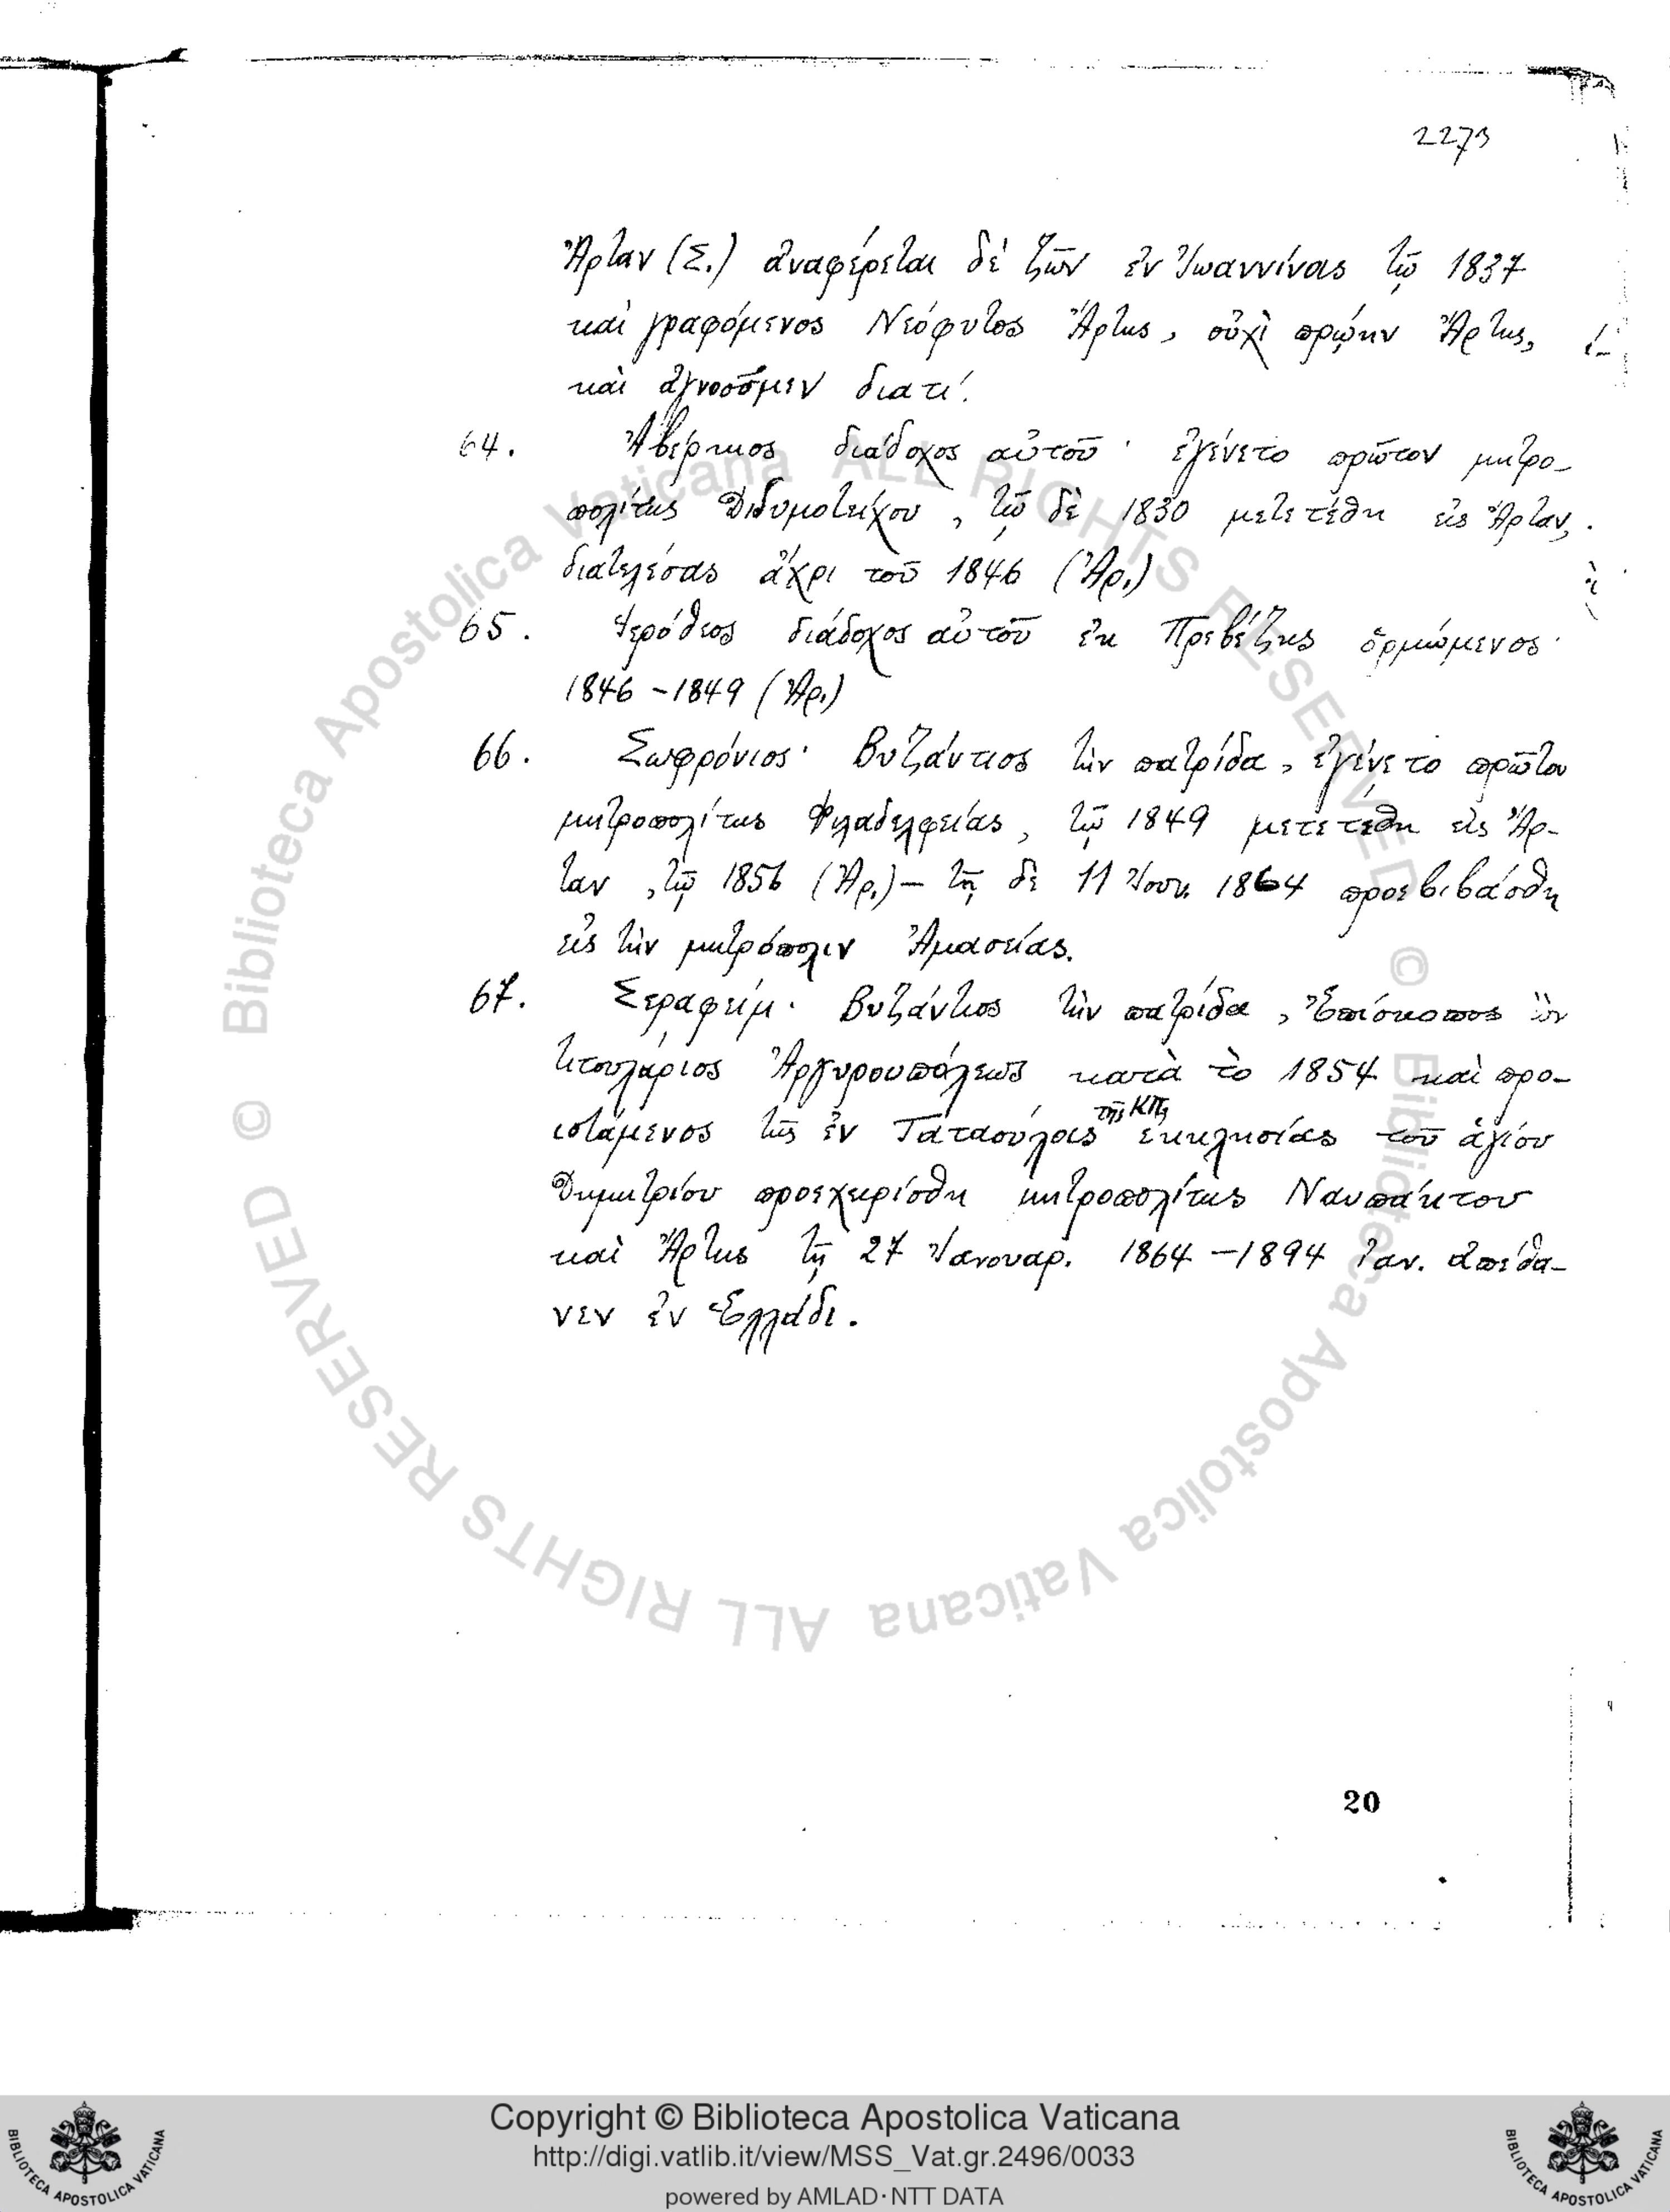 2273
Ἄρταν (Σ.) ἀναφέρεται δὲ ζῶν ἐν Ἰωαννίνας τῷ 1837
καὶ γραφόμενος Νεόφυτος Ἄρτης, οὐχὶ πρώην Ἄρτης,
καὶ ἀγνοοῦμεν διατί.
64. Ἀβέρκιος διάδοχος αὐτοῦ· ἐγένετο πρῶτον μητρο-
πολίτης Διδυμοτείχου, τῷ δὲ 1830 μετετέθη εἰς Ἄρταν,
διατελέσας ἄχρι τοῦ 1846 (Ἀρ.)
65. Ἱερόθεος διάδοχος αὐτοῦ ἐκ Πρεβέζης ὁρμώμενος·
1846 - 1849 (Ἀρ.)
66. Σωφρόνιος· Βυζάντιος τὴν πατρίδα, ἐγένετο πρῶτον
μητροπολίτης Φιλαδελφείας, τῷ 1849 μετετέθη εἰς Ἄρ-
ταν, τῷ 1856 (Ἀρ.) - τῇ δὲ 11 Ἰουν. 1864 προεβιβάσθη
εἰς τὴν μητρόπολιν Ἀμασείας.
67. Σεραφείμ· Βυζάντιος τὴν πατρίδα, Ἐπίσκοπος ὢν
τιτουλάριος Ἀργυρουπόλεως κατὰ τὸ 1854 καὶ προ-
ιστάμενος τῆς ἐν Ταταούλοις τῆς ΚΠ. ἐκκλησίας τοῦ ἁγίου
Δημητρίου προεχειρίσθη μητροπολίτης Ναυπάκτου
καὶ Ἄρτης τῇ 27 Ἰανουαρ. 1864 - 1894 Ἰαν. ἀπέθα-
νεν ἐν Ἑλλάδι.
20
© Biblioteca Apostolica Vaticana ALL RIGHTS RESERVED © Biblioteca Apostolica Vaticana ALL RIGHTS RESERVED
Copyright © Biblioteca Apostolica Vaticana
http://digi.vatlib.it/view/MSS_Vat.gr.2496/0033
powered by AMLAD·NTT DATA
BIBLIOTECA APOSTOLICA VATICANA
BIBLIOTECA APOSTOLICA VATICANA